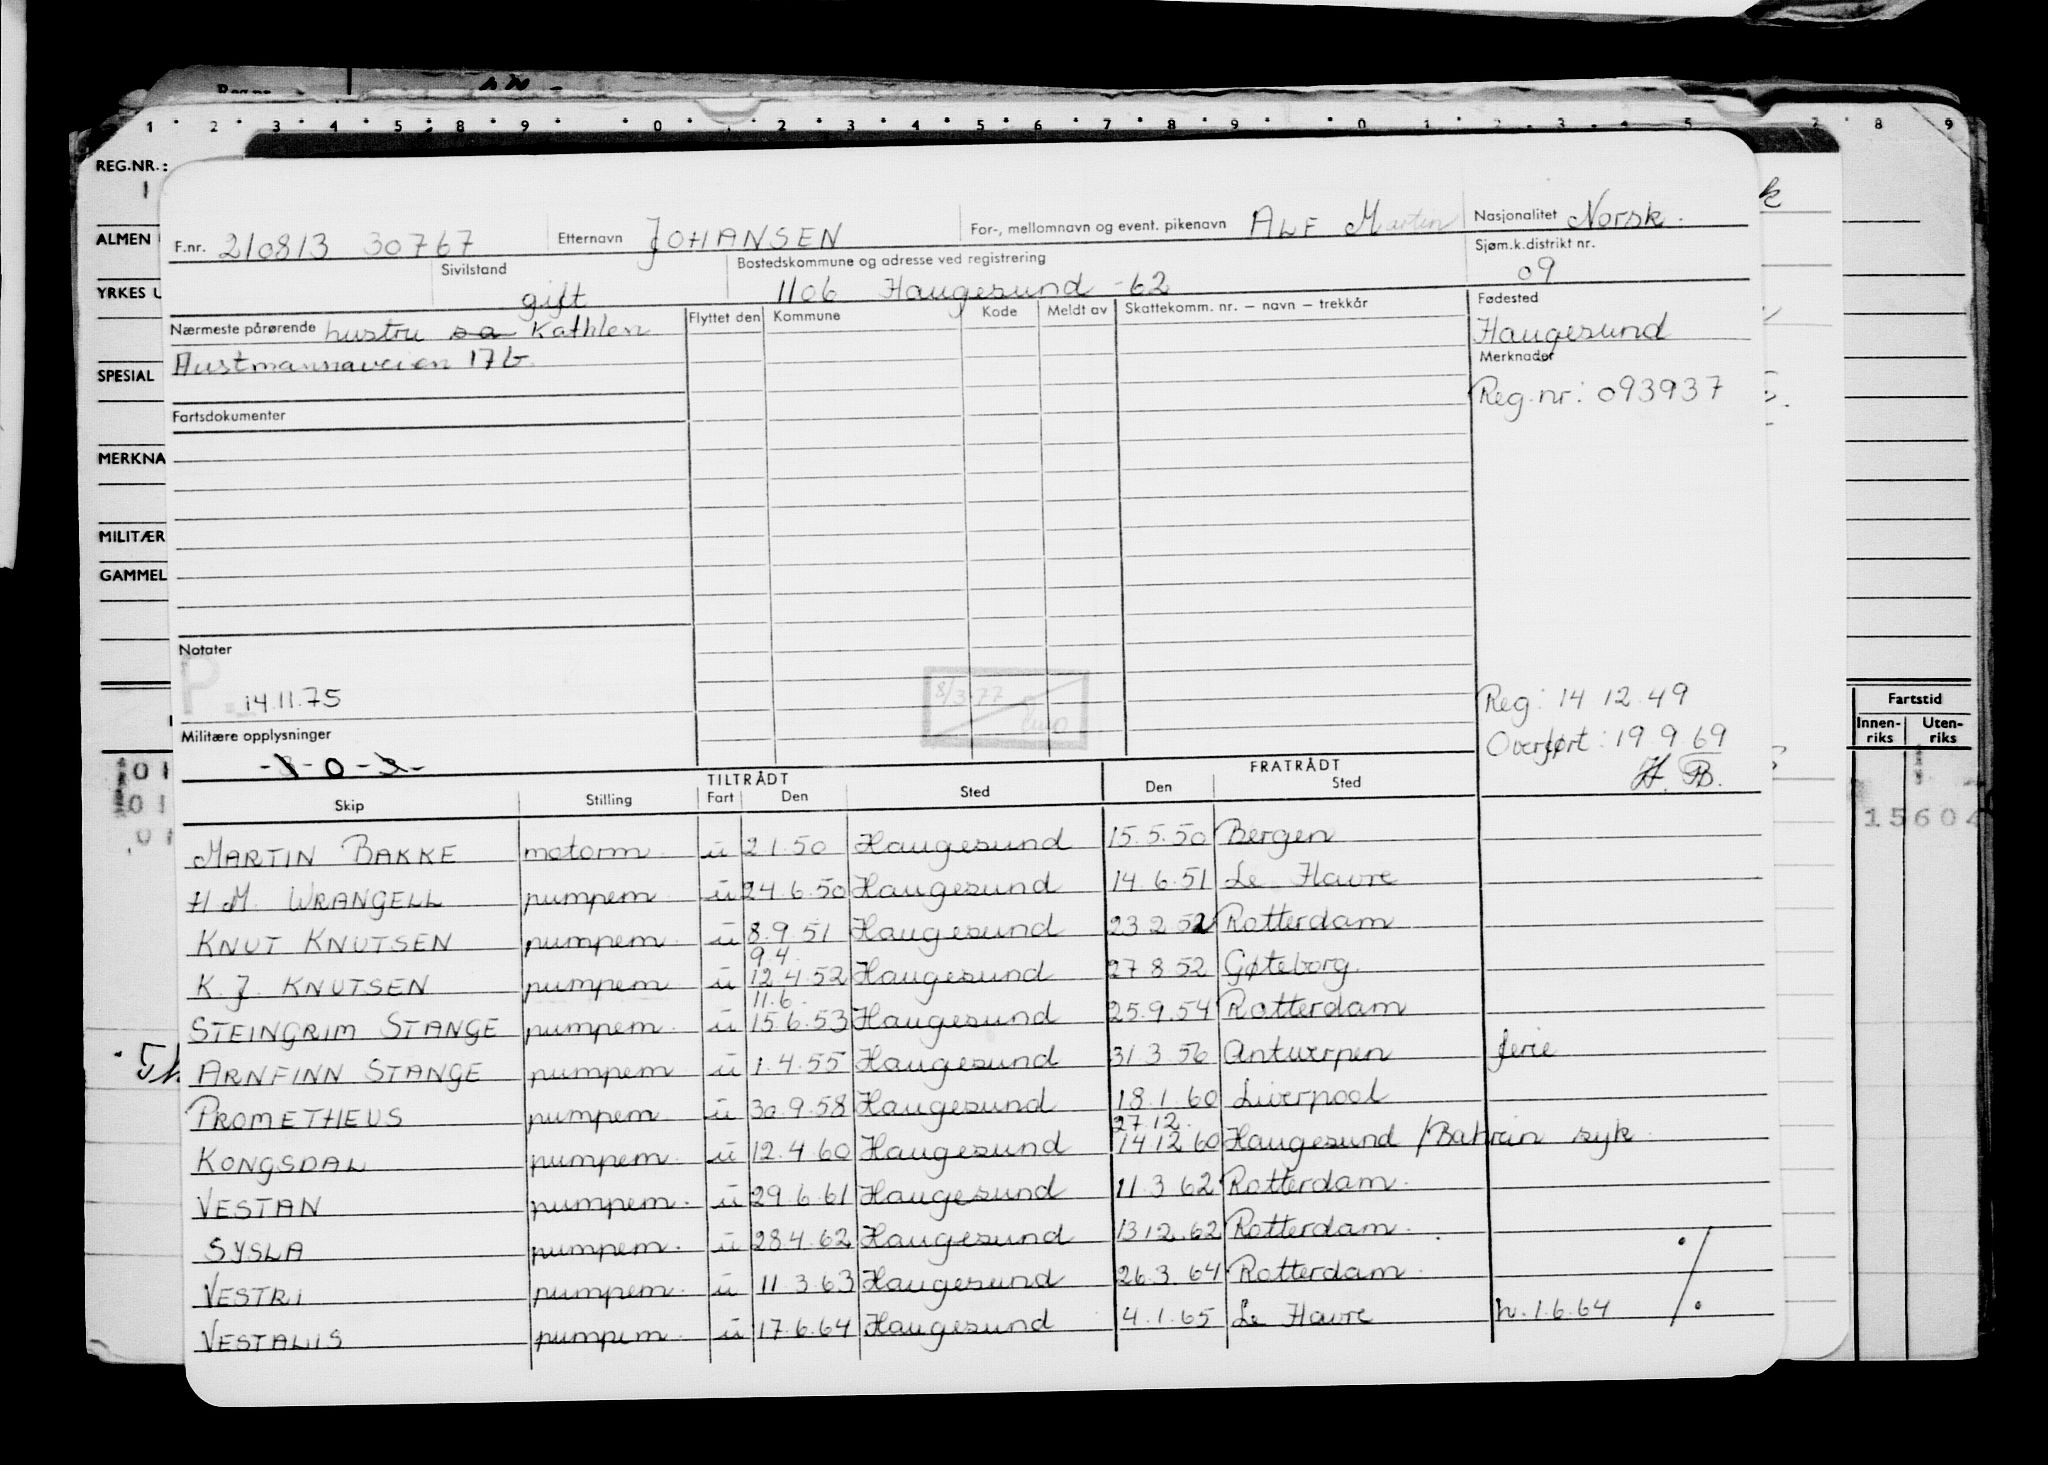 Reg.nr.
1 2 3 4 5 8 9 0 1 2 3 4 5 6 7 8 9 0 1 2 3 4 5 7 8 9
REG.NR.:
1
ALMEN
YRKES U
SPESIAL
MERKNA
MILITÆR
GAMMEL
F.nr. 210813 30767 Etternavn JOHANSEN For-, mellomnavn og event. pikenavn ALF Martin Nasjonalitet Norsk.
Sivilstand gift Bostedskommune og adresse ved registrering 1106 Haugesund -62 Sjøm.k.distrikt nr. 09
Nærmeste pårørende hustru sa Kathlen Flyttet den Kommune Kode Meldt av Skattekomm. nr. – navn – trekkår Fødested
Haugesund
Hustmannaveien 17b Merknader
Reg.nr: 093937
Fartsdokumenter
Notater
P. 14.11.75 8/3 77
Reg: 14 12.49
Militære opplysninger Overført: 19.9.69
-0- H. B.
TILTRÅDT FRATRÅDT
Skip Stilling Fart Den Sted Den Sted
MARTIN BAKKE motorm. u 2 1.50 Haugesund 15.5.50 Bergen
H M. WRANGELL pumpem. u 24.6.50 Haugesund 14.6.51 Le Havre
KNUT KNUTSEN pumpem. u 8.9.51 Haugesund 23 2 52 Rotterdam
9.4.
K. J. KNUTSEN pumpem u 12.4.52 Haugesund 27 8 52 Gøteborg.
11.6.
STEINGRIM STANGE pumpem. u 15.6.53 Haugesund 25.9.54 Rotterdam
ARNFINN STANGE pumpem u 1.4.55 Haugesund 31.3.56 Antwerpen ferie
PROMETHEUS pumpem u 30.9.58 Haugesund 18.1.60 Liverpool
27.12.
KONGSDAL pumpem. u 12.4.60 Haugesund 14 12 60 Haugesund / Bahrin syk.
VESTAN pumpem. u 29.6.61 Haugesund 11.3 62 Rotterdam.
SYSLA pumpem. u 28.4.62 Haugesund 13 12.62 Rotterdam.
VESTRI pumpem. u 11.3.63 Haugesund 26.3.64 Rotterdam.
VESTALIS pumpem. u 17.6.64 Haugesund 4.1.65 Le Havre h. 1.6.64 ./.
Fartstid
Innen-riks Uten-riks
01
01
01
15604